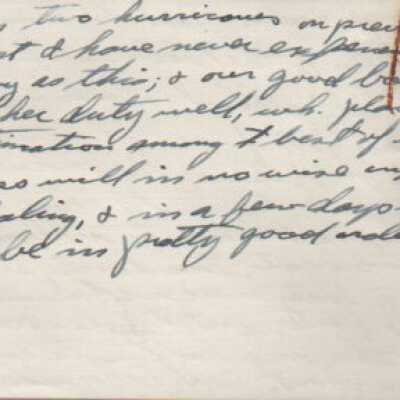 two hurricanes on prev
st & have never experien
as this; & our good ba
her duty well, wh. pla
mation among t best of
so will in no wise
aling, & in a few days
be in pretty good orde